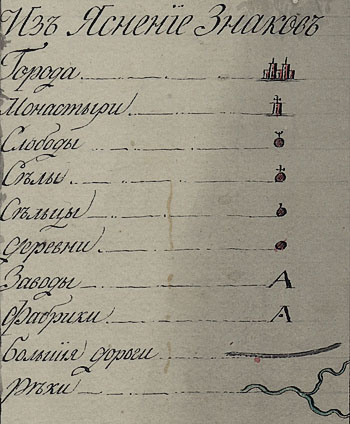 Изъ Ясненїе Знаковъ
Города
Монастыри
Слободы
Сѣлы
Сѣльцы
Деревни
Заводы А
Фабрики А
Большїя дороги
Рѣки